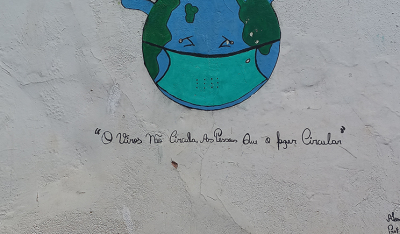 "O Vírus Não Circula, As Pessoas Que o fazem Circular"